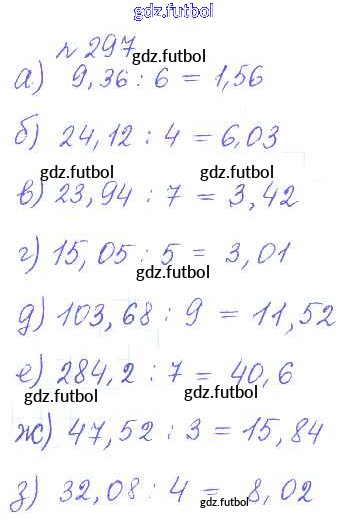 gdz.futbol
№ 297
gdz.futbol
а) 9,36 : 6 = 1,56
gdz.futbol
б) 24,12 : 4 = 6,03
gdz.futbol gdz.futbol
в) 23,94 : 7 = 3,42
gdz.futbol
г) 15,05 : 5 = 3,01
gdz.futbol
д) 103,68 : 9 = 11,52
gdz.futbol
е) 284,2 : 7 = 40,6
gdz.futbol gdz.futbol
ж) 47,52 : 3 = 15,84
gdz.futbol
з) 32,08 : 4 = 8,02
gdz.futbol